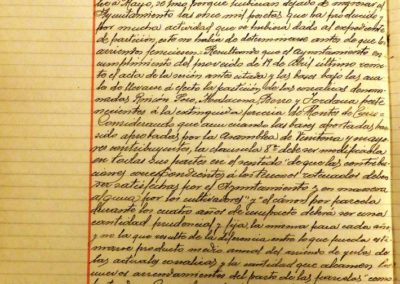 a Mayo, no hay porque hubieran dejado de ingresar el
Ayuntamiento las once mil pesetas que ha producido y
por mucha actividad que se hubiera dado al expediente
de partición, este no había de determinarse antes de que los
arriendos feneciesen: Resultando que el Ayuntamiento en
cumplimiento del proveido de 17 de Abril último remi-
te el acta de la sesión antes citada y las bases bajo las cua-
les de llevarse á efecto la partición, de los comunales denomi-
nados Rincón, Soto, y
necientes á la extinguida parcería de Montes de
Considerando que aun cuando las bases aportadas han
sido aprobadas por la Asamblea de Veintena y mayo-
res contribuyentes, la clausula 8ª debe ser modificada
en todas sus partes en el sentido de que las contribu-
ciones correspondientes á los terrenos roturados deben
ser satisfechas por el Ayuntamiento y en manera
alguna por los cultivadores" y el canon por parcela
durante los cuatro años de usufructo deberá ser una
cantidad prudencial y fija, la misma para cada año
y no la que resulte de la diferencia entre lo que pueda esti-
marse producto medio anual del arriendo de yerbas de
las actuales corralizas y la cantidad que alcancen los
nuevos arrendamientos del pasto de las parcelas" como